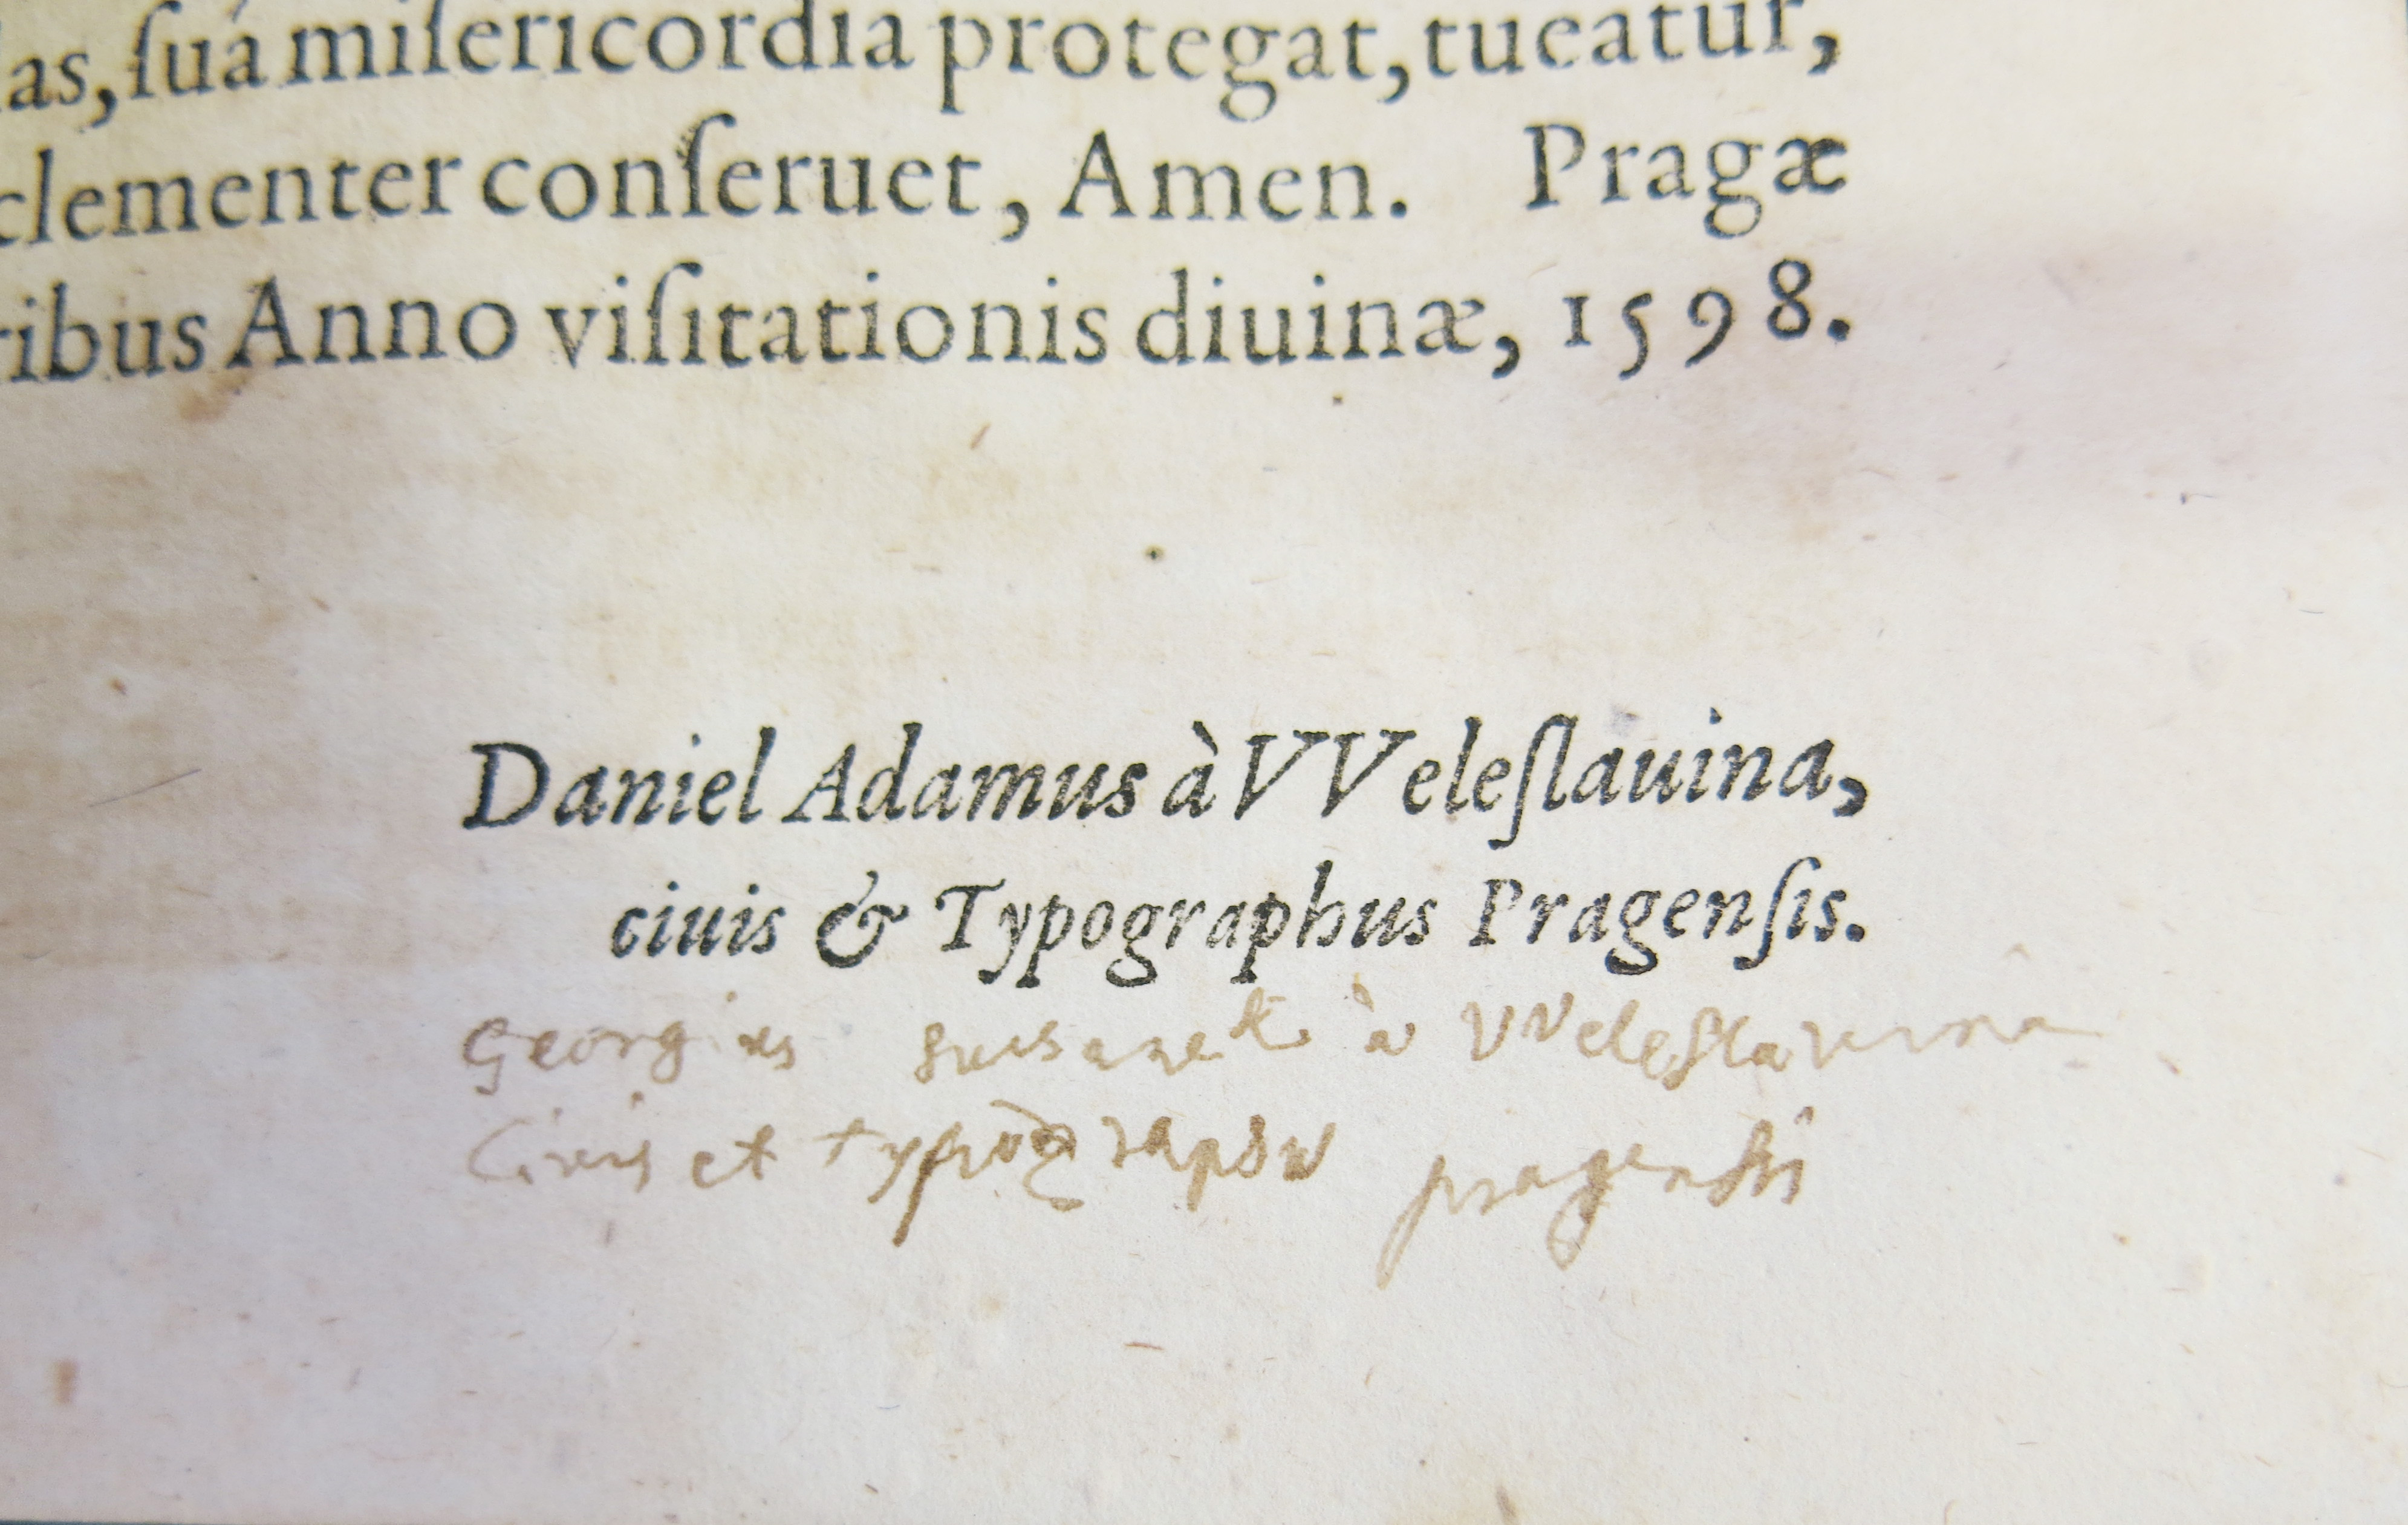 as, ſuá miſericordia protegat, tueatur,
clementer conſeruet, Amen. Pragæ
ribus Anno viſitationis diuinæ, 1598.
Daniel Adamus à VVeleſlauina,
ciuis & Typographus Pragenſis.
Georgius à VVeleſlavina
Civis et